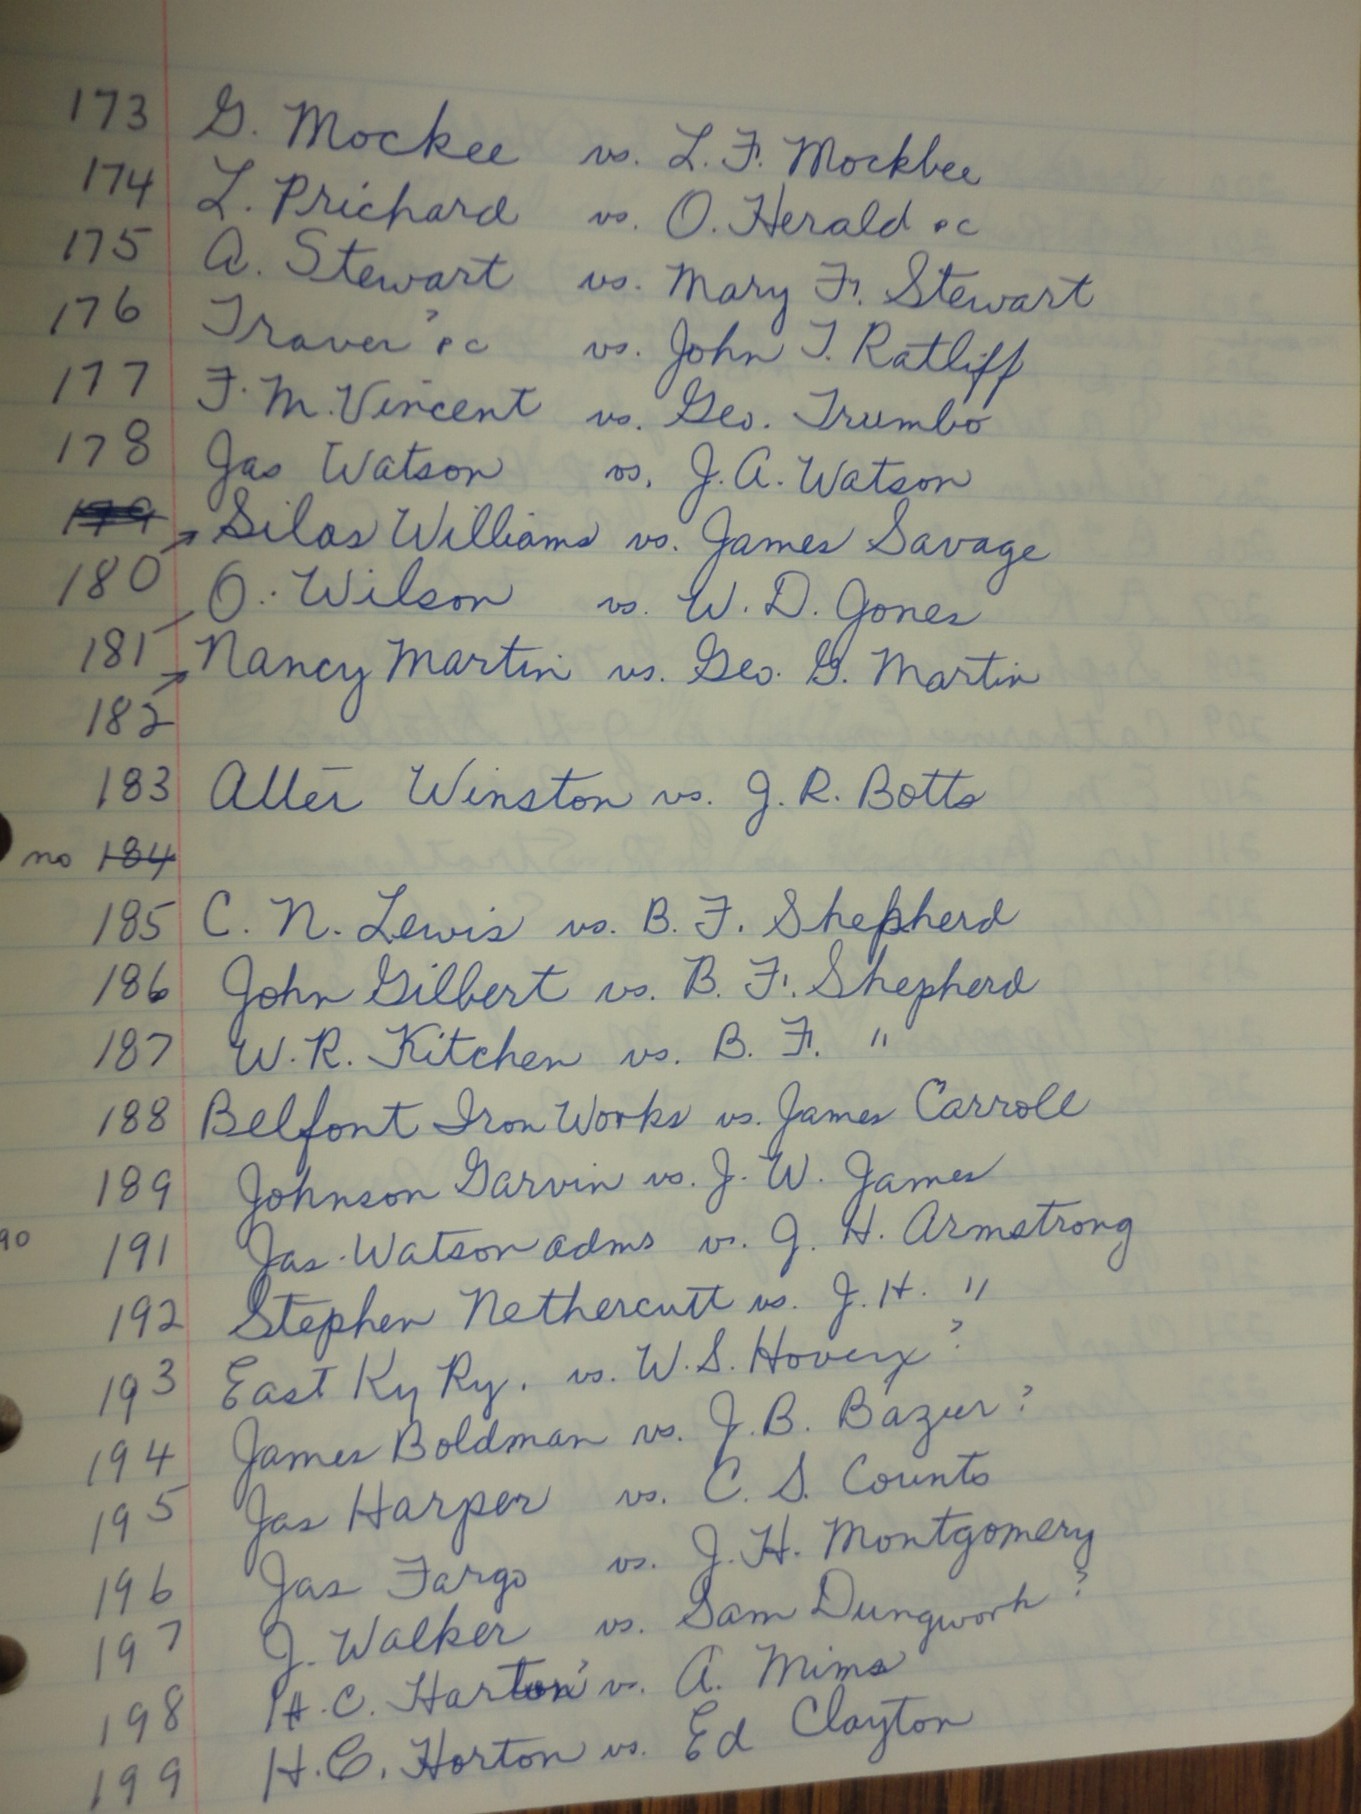 173 G. Mockee vs. L. F. Mockbee
174 L. Prichard vs. O. Herald pc
175 A. Stewart vs. Mary F. Stewart
176 Traver? pc vs. John T. Ratliff
177 F. M. Vincent vs. Geo. Trumbo
178 Jas Watson vs. J. A. Watson
179 Silas Williams vs. James Savage
180 O. Wilson vs. W. D. Jones
181 Nancy Martin vs. Geo. G. Martin
182
183 Allie Winston vs. J. R. Botts
no 184
185 C. N. Lewis vs. B. F. Shepherd
186 John Gilbert vs. B. F. Shepherd
187 W. R. Kitchen vs. B. F. "
188 Belfont Iron Works vs. James Carroll
189 Johnson Garvin vs. J. W. James
90 191 Jas. Watson adms vs. J. H. Armstrong
192 Stephen Nethercutt vs. J. H. "
193 East Ky Ry. vs. W. S. Hovery?
194 James Boldman vs. J. B. Bazur?
195 Jas Harper vs. C. S. Counts
196 Jas Fargo vs. J. H. Montgomery
197 J. Walker vs. Sam Dungwork?
198 H. C. Harton? vs. A. Mims
199 H. C. Horton vs. Ed Clayton